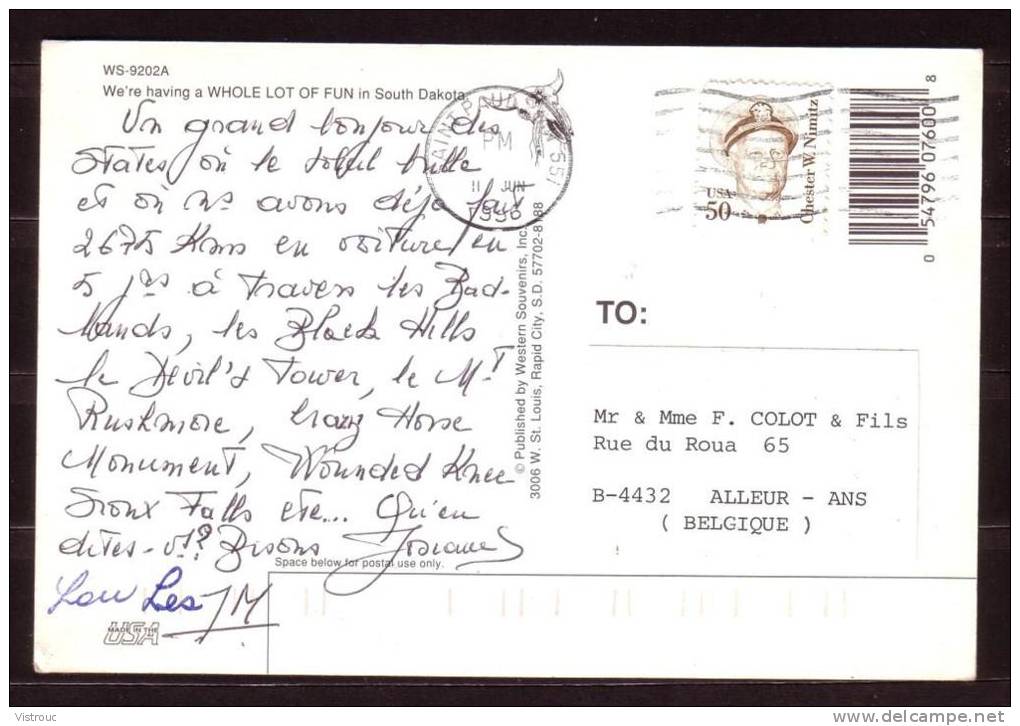 WS-9202A
We're having a WHOLE LOT OF FUN in South Dakota
Un grand bonjour des
States où le soleil brille
et où ns avons déjà fait
2675 Kms en voiture en
5 jrs à travers les Bad-
lands, les Black Hills
le Devil's Tower, le Mt
Rushmore, Crazy Horse
Monument, Wounded Knee
Sioux Falls etc... Qu'en
dites-vs? Bisons Josiane
Lou Les JM
MADE IN THE
USA
Space below for postal use only.
© Published by Western Souvenirs, Inc.
3006 W. St. Louis, Rapid City, S.D. 57702-8188
SAINT PAUL
PM
11 JUN
1996
551
USA
50
Chester W. Nimitz
0 54796 07600 8
TO:
Mr & Mme F. COLOT & Fils
Rue du Roua 65
B-4432 ALLEUR - ANS
( BELGIQUE )
Vistrouc
delcampe.net